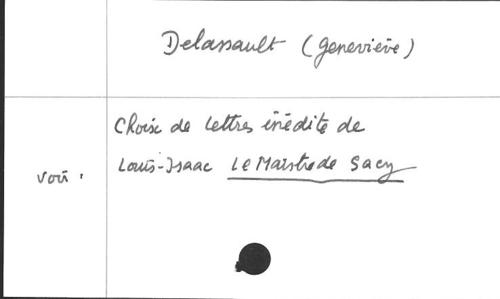 Delassault (Geneviève)
Choix de lettres inédite de
Louis-Isaac Le Maistre de Sacy
voir :